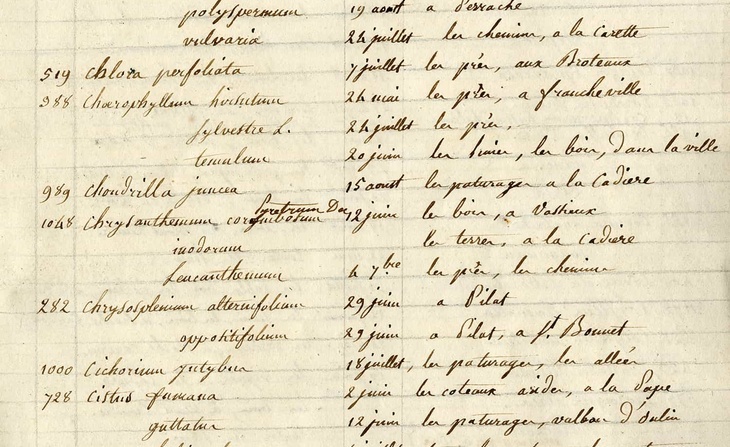 polyspermum 19 aoust a perrache
vulvaria 24 juillet les chemins, a la Carette
519 chlora perfoliata 7 juillet les prés, aux Broteaux
988 Chœrophyllum hirsutum 24 mai les prés, a francheville
sylvestre L. 24 juillet les prés,
temulum 20 juin les haies, les bois, dans la ville
989 Chondrilla juncea 15 aoust les paturages a la Cadiere
1048 Chrysanthemum corymbosum Pyretrum Dec 12 juin les bois, a Vassieux
inodorum les terres, a la Cadiere
Leucanthemum 4 7bre les prés, les chemins
282 Chrysosplenium alternifolium 29 juin a Pilat
oppositifolium 29 juin a Pilat, a St. Bonnet
1000 Cichorium Intybus 18 juillet, les paturages, les allées
728 Cistus fumana 2 juin les coteaux arides, a la Pape
guttatus 12 juin les paturages, valbon d'oulin